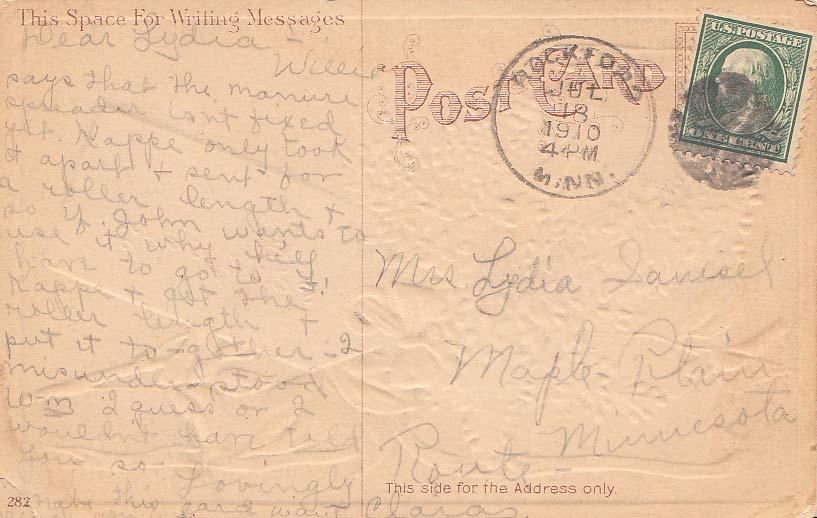 This Space For Writing Messages
Dear Lydia -
Willie
says that the manure
spreader isn't fixed
yet. Kappe only took
it apart & sent for
a roller length &
so if John wants to
use it why he'll
have to go to
Kappe & get the
roller length &
put it to-gether - I
misunder-stood
Wm I guess or I
wouldn't have told
you so. Lovingly
Clara
this card want
282
POST CARD
ROCKFORD
JUL
18
1910
4 PM
MINN.
U.S. POSTAGE
ONE CENT
Mrs. Lydia
Maple-Plain
Minnesota
Route-
This side for the Address only.